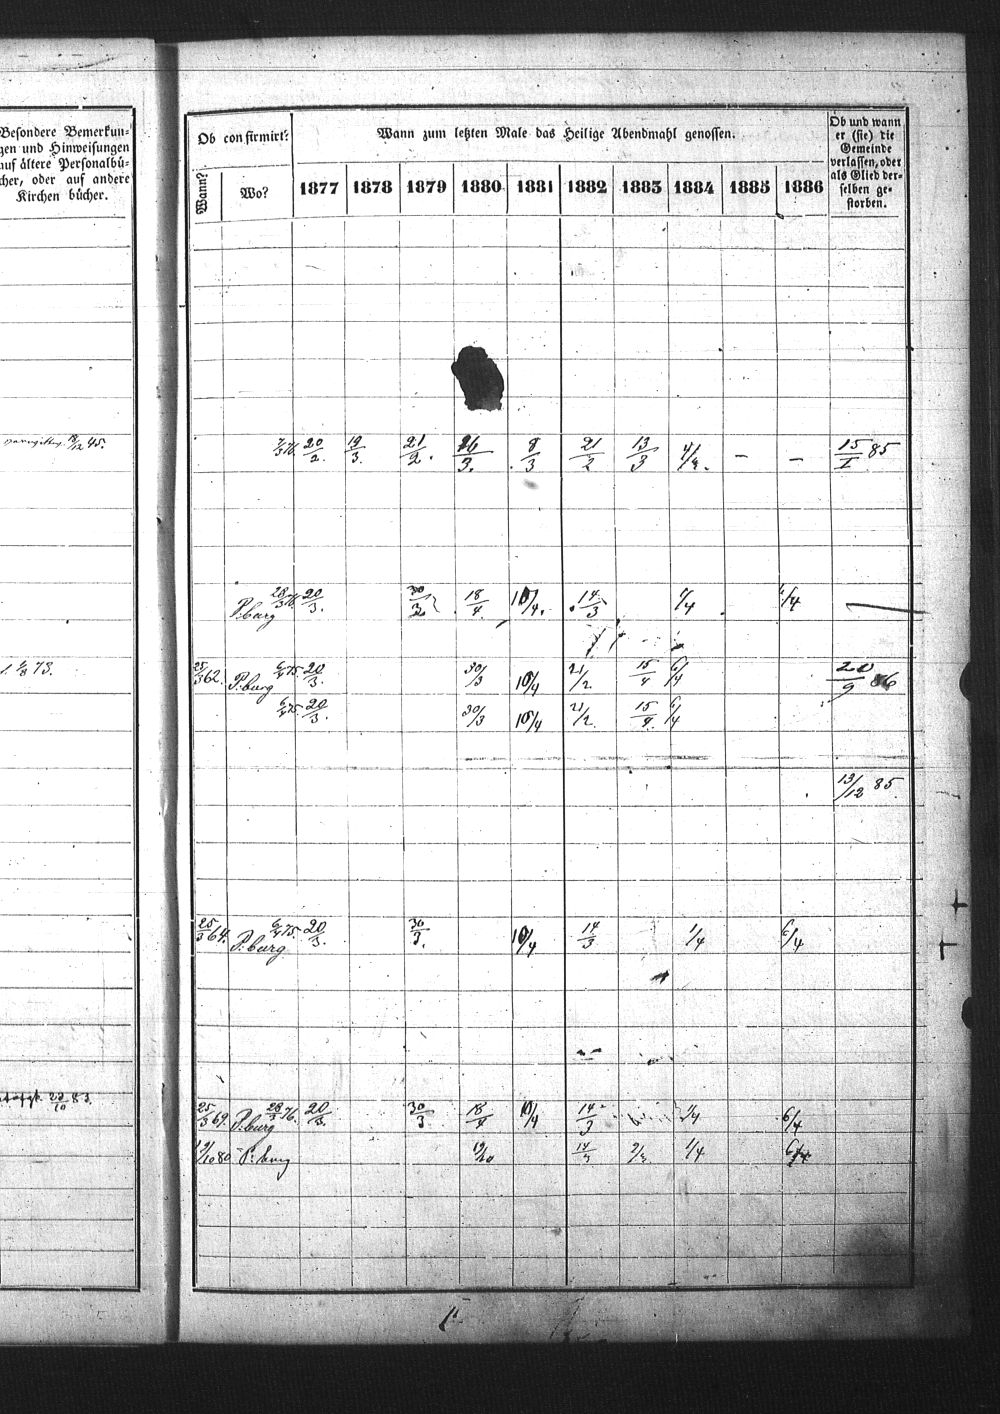 Besondere Bemerkun-
gen und Hinweisungen
auf ältere Personalbü-
cher, oder auf andere
Kirchen bücher.
Ob confirmirt?
Wann zum letzten Male das Heilige Abendmahl genossen.
Ob und wann
er (sie) die
Gemeinde
verlassen, oder
als Glied der-
selben ge-
storben.
Wann? Wo? 1877 1878 1879 1880 1881 1882 1883 1884 1885 1886
18/12 45. 7/3 76. 20/2. 19/3. 21/2. 16/3. 8/3 21/2 13/3 4/3. – – 15/I 85
P:burg 28/3 76. 20/3. 30/3 18/4 10/4. 14/3 1/4 6/4
73. 25/3 62. P:burg 6/4 75. 20/3. 30/3 10/4 21/2 15/4 6/4 20/9 86
6/4 75. 20/3. 30/3 10/4 21/2. 15/4. 6/4
13/12 85.
25/3 64. P:burg 6/4 75. 20/3. 30/3. 10/4 14/3 1/4 6/4
23/10 83.
25/3 69. P:burg 28/3 76. 20/3. 30/3 18/4 10/4 14/3 1/4 6/4
19/10 80 P:burg 19/10 14/3 2/3 1/4 6/4